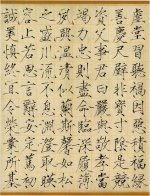 堂習聽禍因惡積福緣
善慶尺璧非寶寸陰是競
資父事君曰嚴與敬孝當
竭力忠則盡命臨深履薄
夙興溫凊似蘭斯馨如松
之盛川流不息淵澄取映
容止若思言辭安定篤初
誠美慎終宜令榮業所基